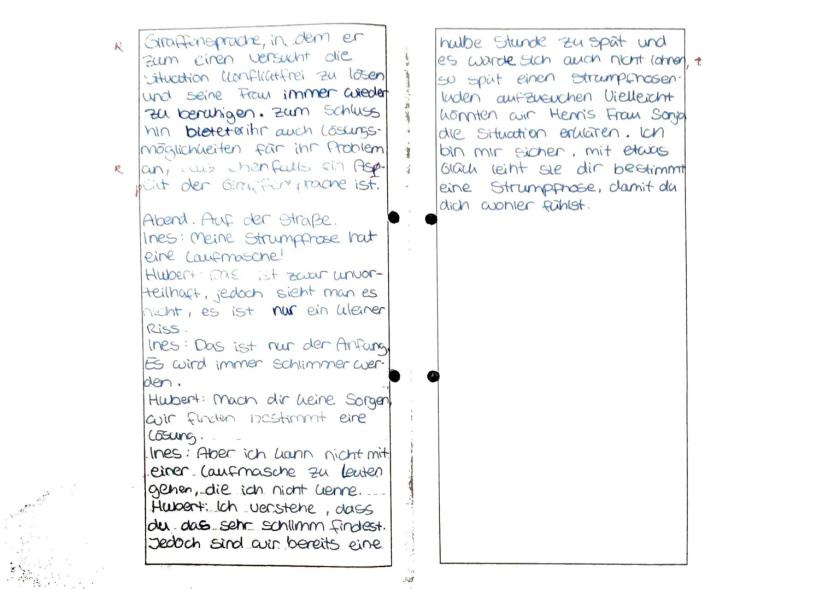 R
Giraffensprache, in dem er
zum einen versucht die
Situation konfliktfrei zu lösen
und seine Frau immer wieder
zu beruhigen. Zum Schluss
hin bietet er ihr auch Lösungs-
möglichkeiten für ihr Problem
R
an, was ebenfalls ein Asp-
pekt der Giraffensprache ist.
Abend. Auf der Straße.
Ines: Meine Strumpfhose hat
eine Laufmasche!
Hubert: Das ist zwar unvor-
teilhaft, jedoch sieht man es
nicht, es ist nur ein kleiner
Riss.
Ines: Das ist nur der Anfang.
Es wird immer schlimmer wer-
den.
Hubert: Mach dir keine Sorgen,
wir finden bestimmt eine
Lösung.
Ines: Aber ich kann nicht mit
einer Laufmasche zu Leuten
gehen, die ich nicht kenne.
Hubert: Ich verstehe, dass
du das sehr schlimm findest.
Jedoch sind wir bereits eine
halbe Stunde zu spät und
es würde sich auch nicht lohnen,
so spät einen Strumpfhosen-
laden aufzusuchen Vielleicht
könnten wir Henris Frau Sonja
die Situation erklären. Ich
bin mir sicher, mit etwas
Glück leiht sie dir bestimmt
eine Strumpfhose, damit du
dich wohler fühlst.